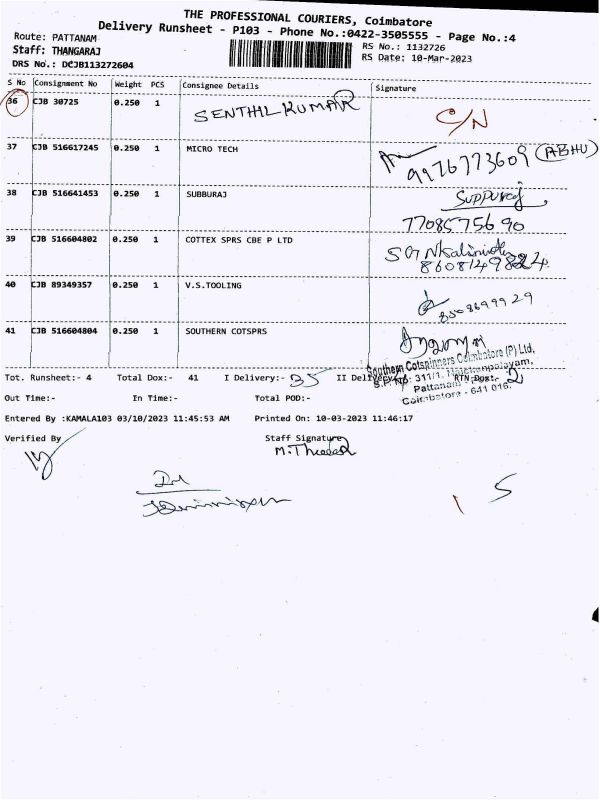 THE PROFESSIONAL COURIERS, Coimbatore
Delivery Runsheet - P103 - Phone No.:0422-3505555 - Page No.:4
Route: PATTANAM
RS No.: 1132726
Staff: THANGARAJ
RS Date: 10-Mar-2023
DRS No.: DCJB113272604
S No Consignment No Weight PCS Consignee Details Signature
36 CJB 30725 0.250 1 SENTHIL KUMAR C/N
37 CJB 516617245 0.250 1 MICRO TECH 9976773609 (ABHU)
38 CJB 516641453 0.250 1 SUBBURAJ Suppuraj
7708575690
39 CJB 516604802 0.250 1 COTTEX SPRS CBE P LTD
40 CJB 89349357 0.250 1 V.S.TOOLING
41 CJB 516604804 0.250 1 SOUTHERN COTSPRS
Southern Cotspinners Coimbatore (P) Ltd,
Tot. Runsheet:- 4 Total Dox:- 41 I Delivery:- 35 II Delivery:- RTN Dox:- 2
S.F. No: 311/1,
Pattanam
Coimbatore - 641 016.
Out Time:- In Time:- Total POD:-
Entered By :KAMALA103 03/10/2023 11:45:53 AM Printed On: 10-03-2023 11:46:17
Verified By Staff Signature
5